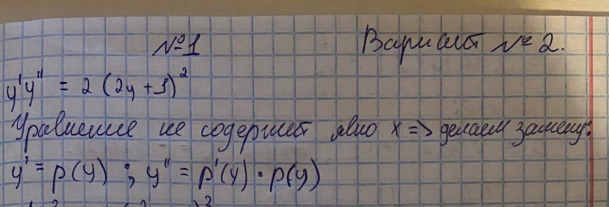 №1 Вариант № 2.
y'y" = 2 (2y + 1)²
Уравнение не содержит явно x => делаем замену:
y' = p(y) ; y" = p'(y) · p(y)